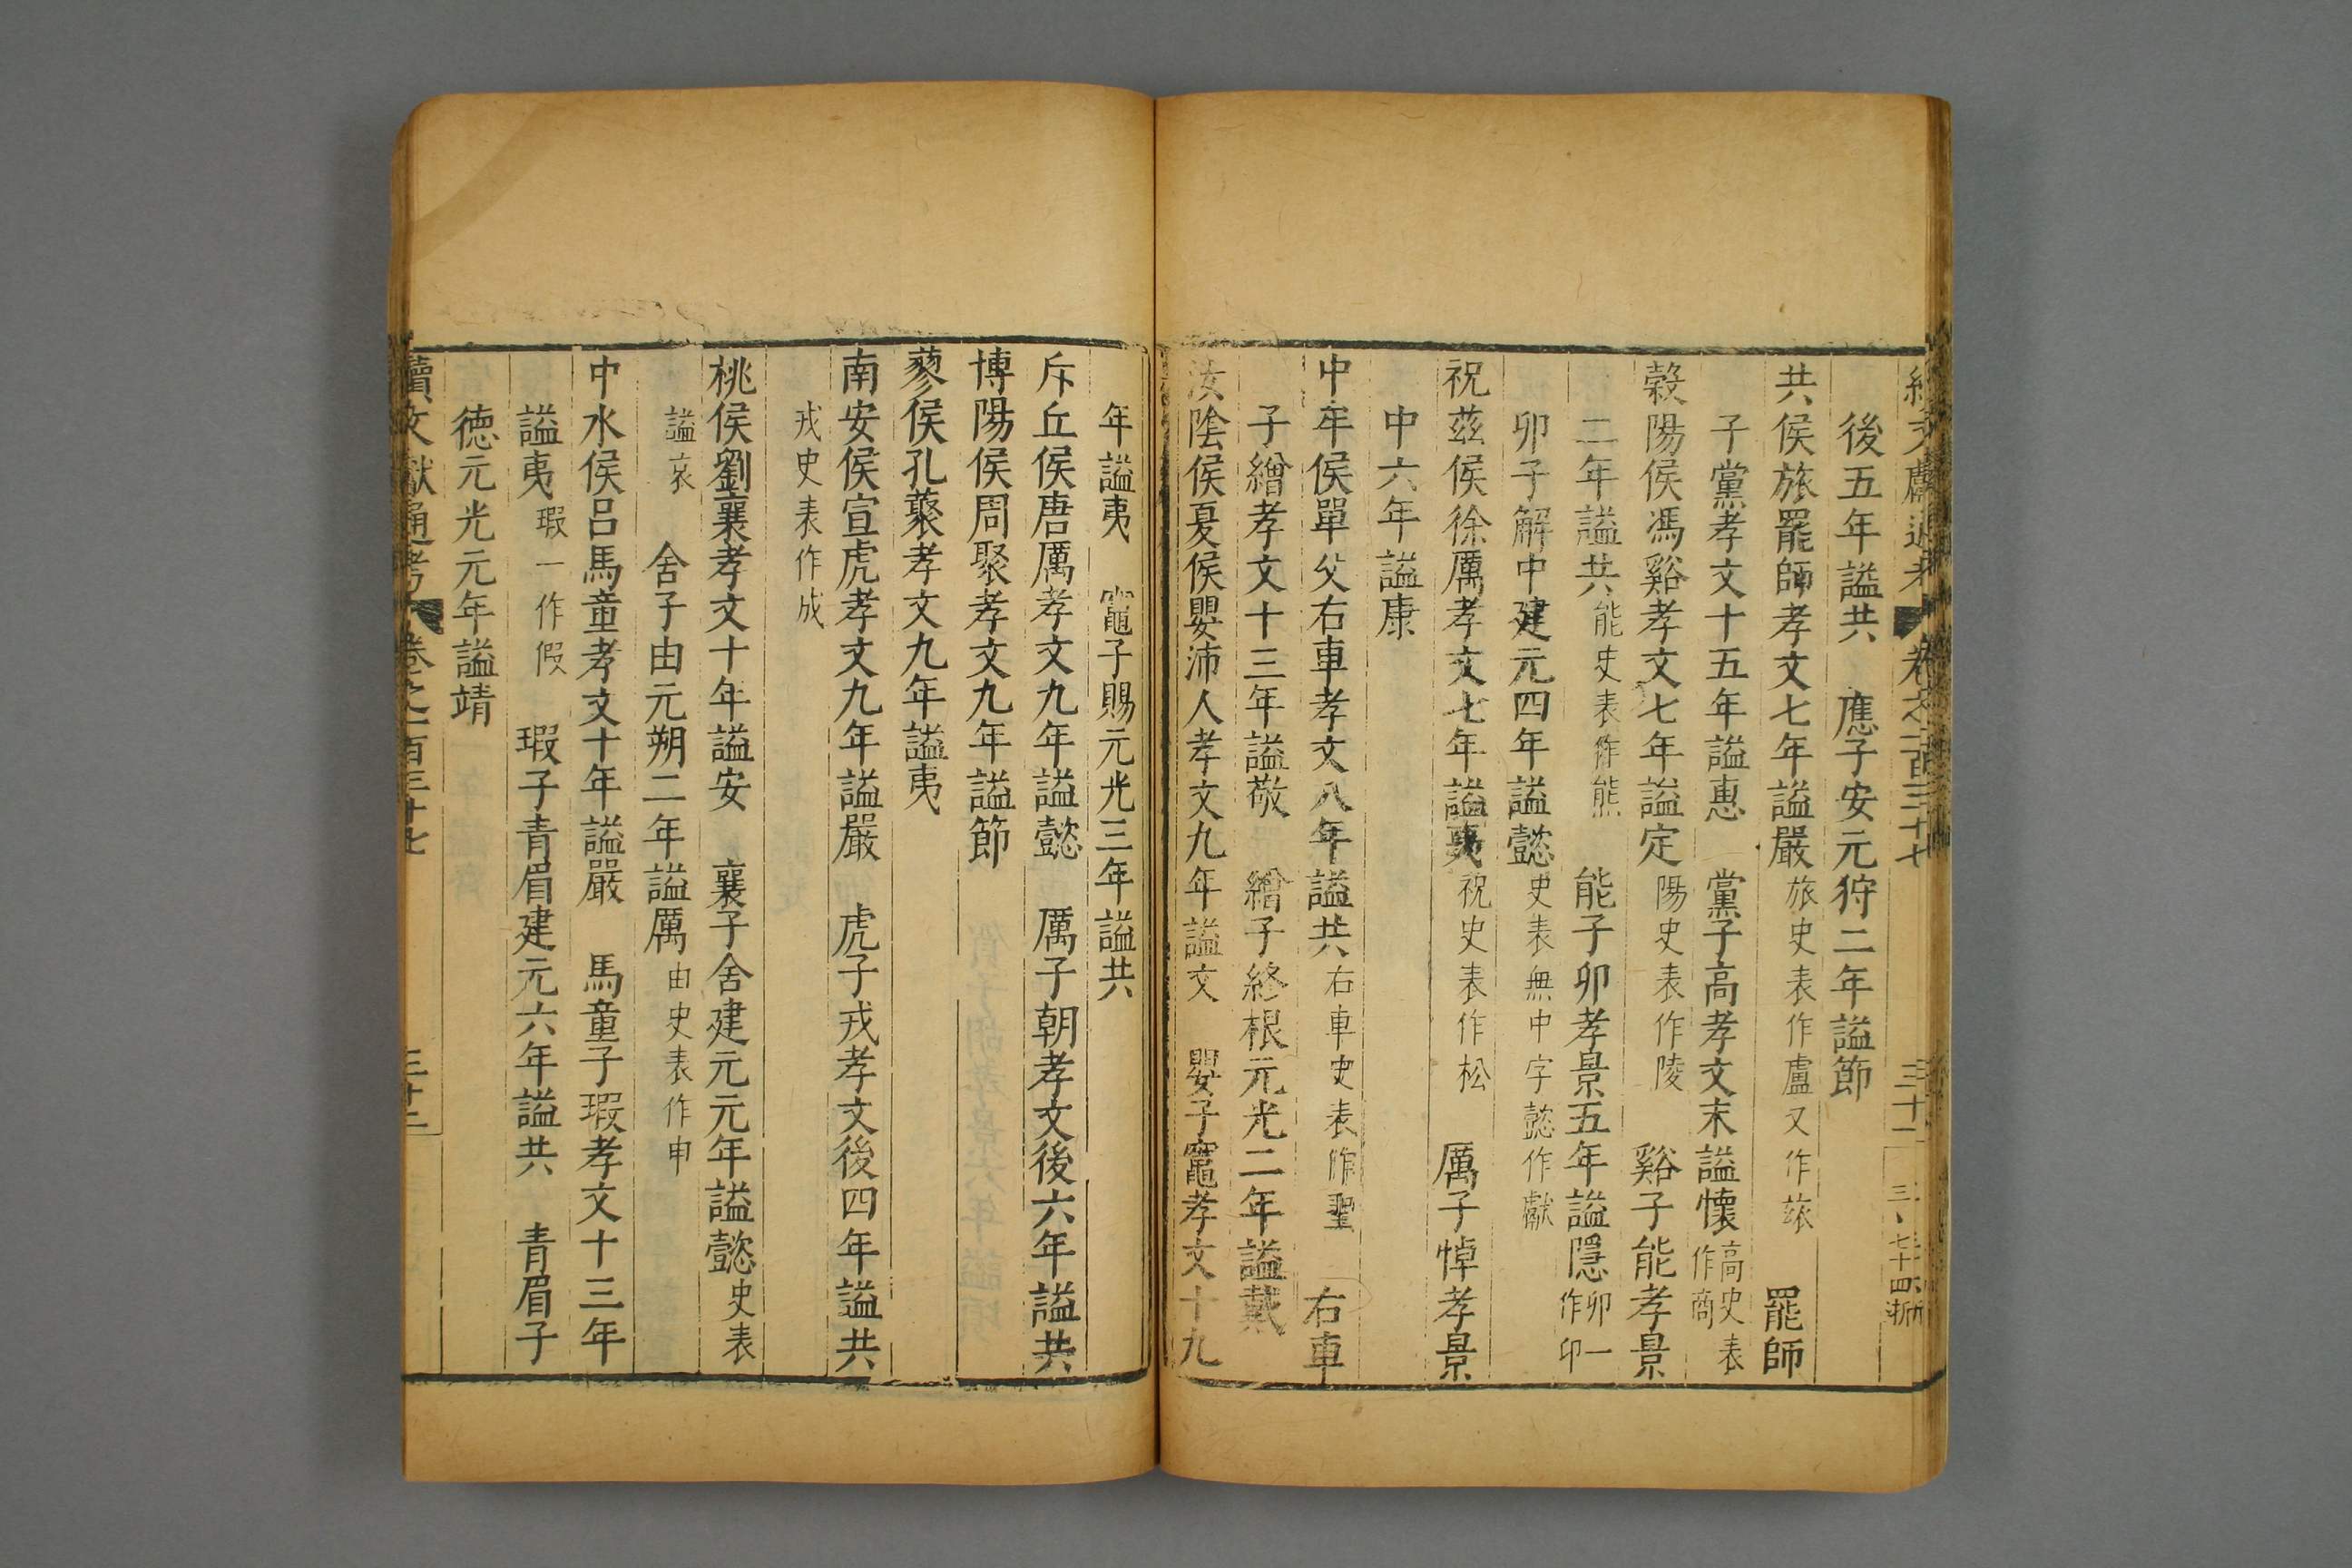 後五年謚共　應子安元狩二年謚節
共侯旅罷師孝文七年謚嚴旅史表作盧又作茲　罷師
子黨孝文十五年謚惠　黨子高孝文末謚懷高史表作商
穀陽侯馮谿孝文七年謚定陽史表作陵　谿子能孝景
二年謚共能史表作熊　能子卯孝景五年謚隱卯一作印
卯子解中建元四年謚懿史表無中字懿作獻
祝茲侯徐厲孝文七年謚夷祝史表作松　厲子悼孝景
中六年謚康
中牟侯單父右車孝文八年謚共右車史表作聖　右車
子繒孝文十三年謚敬　繒子終根元光二年謚戴
汝陰侯夏侯嬰沛人孝文九年謚文　嬰子竈孝文十九
年謚夷　竈子賜元光三年謚共
斥丘侯唐厲孝文九年謚懿　厲子朝孝文後六年謚共
博陽侯周聚孝文九年謚節
蓼侯孔藂孝文九年謚夷
南安侯宣虎孝文九年謚嚴　虎子戎孝文後四年謚共
戎史表作成
桃侯劉襄孝文十年謚安　襄子舍建元元年謚懿史表
謚哀　舍子由元朔二年謚厲由史表作申
中水侯呂馬童孝文十年謚嚴　馬童子瑕孝文十三年
謚夷瑕一作假　瑕子青眉建元六年謚共　青眉子
德元光元年謚靖
續文獻通考　卷之一百三十七　三十二